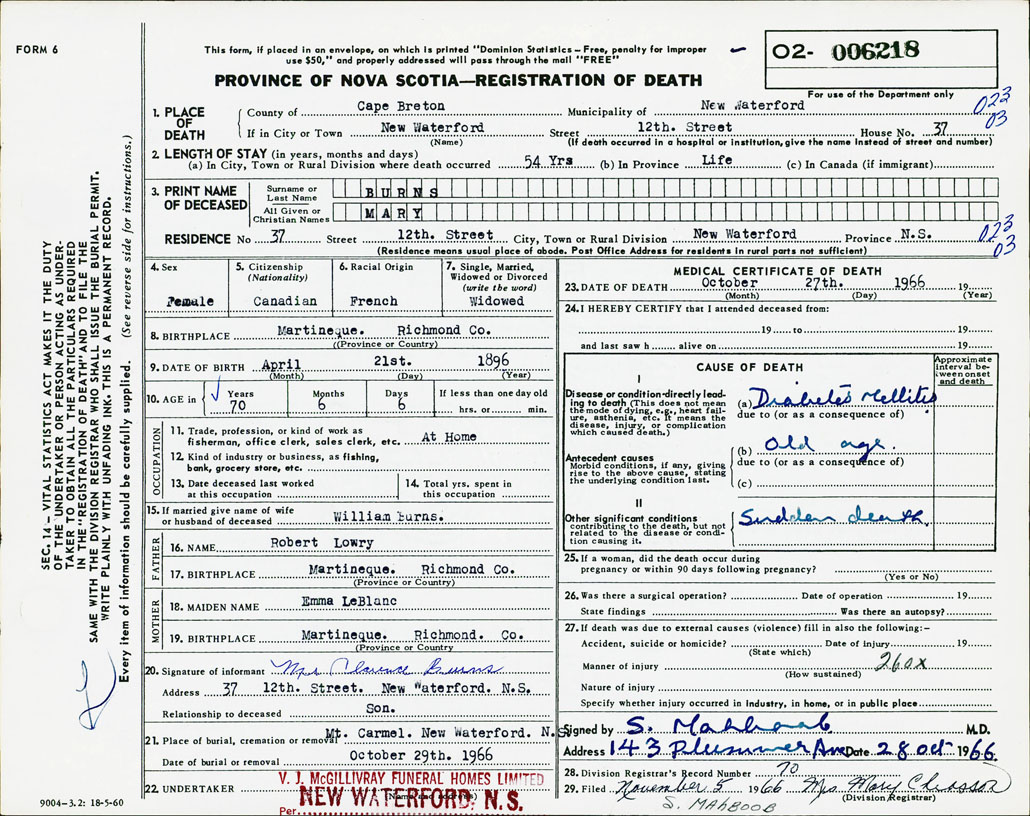 FORM 6
This form, if placed in an envelope, on which is printed "Dominion Statistics – Free, penalty for improper
use $50," and properly addressed will pass through the mail "FREE"
O2- 006218
For use of the Department only
PROVINCE OF NOVA SCOTIA—REGISTRATION OF DEATH
1. PLACE OF DEATH
County of Cape Breton Municipality of New Waterford
023
03
If in City or Town New Waterford Street 12th. Street House No. 37
(Name) (If death occurred in a hospital or institution, give the name instead of street and number)
2. LENGTH OF STAY (in years, months and days)
(a) In City, Town or Rural Division where death occurred 54 Yrs (b) In Province Life (c) In Canada (if immigrant)
3. PRINT NAME OF DECEASED
Surname or Last Name BURNS
All Given or Christian Names MARY
RESIDENCE No 37 Street 12th. Street City, Town or Rural Division New Waterford Province N.S.
023
03
(Residence means usual place of abode. Post Office Address for residents in rural parts not sufficient)
4. Sex
Female
5. Citizenship
(Nationality)
Canadian
6. Racial Origin
French
7. Single, Married,
Widowed or Divorced
(write the word)
Widowed
8. BIRTHPLACE Martineque. Richmond Co.
((Province or Country)
9. DATE OF BIRTH April 21st. 1896
(Month) (Day) (Year)
10. AGE in
Years
70
Months
6
Days
6
If less than one day old
hrs. or min.
OCCUPATION
11. Trade, profession, or kind of work as
fisherman, office clerk, sales clerk, etc. At Home
12. Kind of industry or business, as fishing,
bank, grocery store, etc.
13. Date deceased last worked
at this occupation
14. Total yrs. spent in
this occupation
15. If married give name of wife
or husband of deceased William Burns.
FATHER
16. NAME Robert Lowry
17. BIRTHPLACE Martineque. Richmond Co.
(Province or Country)
MOTHER
18. MAIDEN NAME Emma LeBlanc
19. BIRTHPLACE Martineque. Richmond. Co.
(Province or Country
20. Signature of informant Mrs Clarence Burns
Address 37 12th. Street. New Waterford. N.S.
Relationship to deceased Son.
21. Place of burial, cremation or removal Mt. Carmel. New Waterford. N.S.
Date of burial or removal October 29th. 1966
22. UNDERTAKER
V. J. McGILLIVRAY FUNERAL HOMES LIMITED
NEW WATERFORD, N.S.
Per
9004-3.2: 18-5-60
MEDICAL CERTIFICATE OF DEATH
23. DATE OF DEATH October 27th. 1966 19
(Month) (Day) (Year)
24. I HEREBY CERTIFY that I attended deceased from:
19 to 19
and last saw h alive on 19
CAUSE OF DEATH
Approximate
interval be-
tween onset
and death
I
Disease or condition directly lead-
ing to death (This does not mean
the mode of dying, e.g., heart fail-
ure, asthenia, etc. It means the
disease, injury, or complication
which caused death.)
(a) Diabetes Mellitis
due to (or as a consequence of)
Antecedent causes
Morbid conditions, if any, giving
rise to the above cause, stating
the underlying condition last.
(b) Old age.
due to (or as a consequence of)
(c)
II
Other significant conditions
contributing to the death, but not
related to the disease or condi-
tion causing it.
Sudden death.
25. If a woman, did the death occur during
pregnancy or within 90 days following pregnancy?
(Yes or No)
26. Was there a surgical operation? Date of operation 19
State findings Was there an autopsy?
27. If death was due to external causes (violence) fill in also the following:–
Accident, suicide or homicide? Date of injury 19
(State which)
Manner of injury 260x
(How sustained)
Nature of injury
Specify whether injury occurred in industry, in home, or in public place
Signed by S. Mahboob M.D.
Address 143 Plummer Ave Date 28 oct 1966
28. Division Registrar's Record Number 70
29. Filed November 5 1966 Mrs Mary Chiasson
(Division Registrar)
S. MAHBOOB
SEC. 14 – VITAL STATISTICS ACT MAKES IT THE DUTY
OF THE UNDERTAKER OR PERSON ACTING AS UNDER-
TAKER TO OBTAIN ALL THE PARTICULARS REQUIRED
IN THE "REGISTRATION OF DEATH" AND TO FILE THE
SAME WITH THE DIVISION REGISTRAR WHO SHALL ISSUE THE BURIAL PERMIT.
WRITE PLAINLY WITH UNFADING INK. THIS IS A PERMANENT RECORD.
Every item of information should be carefully supplied. (See reverse side for instructions.)